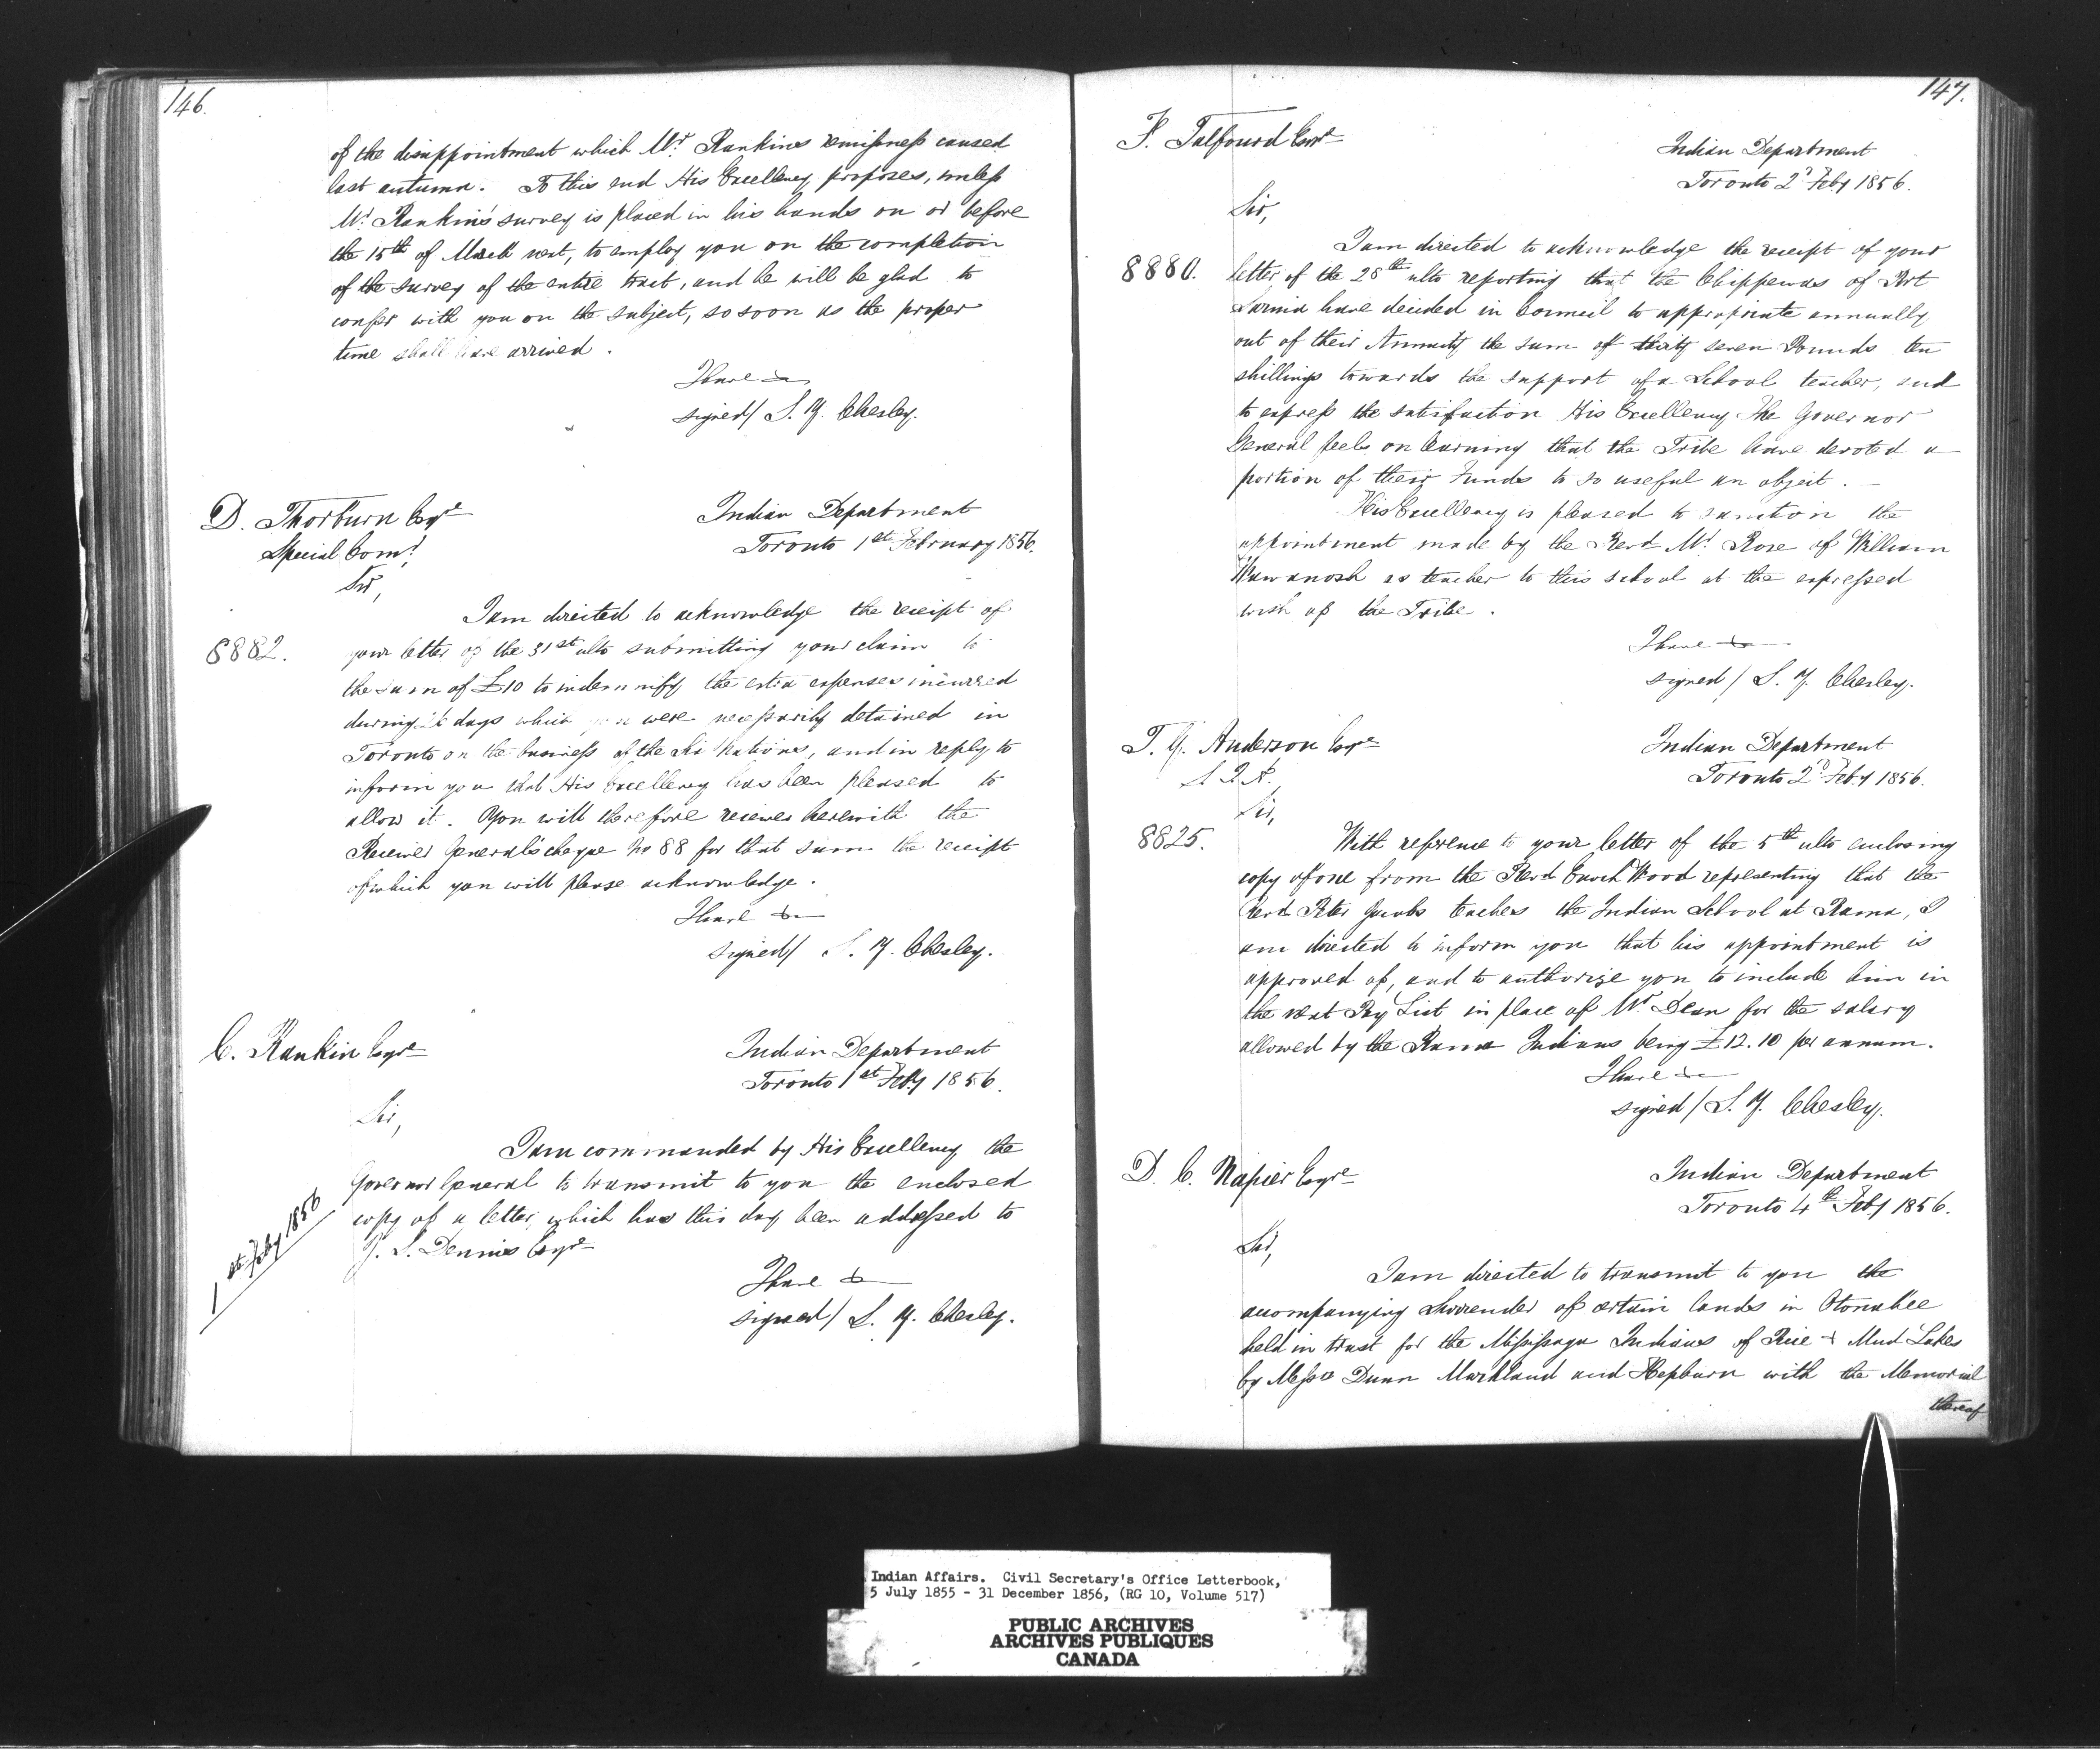 146.
of the disappointment which Mr. Rankins remissness caused
last autumn. To this end His Excellency proposes, unless
Mr. Rankin's survey is placed in his hands on or before
the 15th of March next, to employ you on the completion
of the survey of the entire tract, and he will be glad to
confer with you on the subject, so soon as the proper
time shall have arrived.
I have &c
signed/ S. Y. Chesley.
D. Thorburn Esqre
Special Comr.
Indian Department
Toronto 1st February 1856.
Sir,
I am directed to acknowledge the receipt of
8882.
your letter of the 31st ulto submitting your claim to
the sum of £10 to indemnify the extra expenses incurred
during days which you were necessarily detained in
Toronto on the business of the Six Nations, and in reply to
inform you that His Excellency has been pleased to
allow it. You will therefore receive herewith the
Receiver General's cheque No 88 for that sum the receipt
of which you will please acknowledge.
I have &c
signed/ S. Y. Chesley.
C. Rankin Esqre
Indian Department
Toronto 1st Feby 1856.
Sir,
I am commanded by His Excellency the
Governor General to transmit to you the enclosed
copy of a letter, which has this day been addressed to
J. S. Dennis Esqre
1st Feby 1856
I have &c
signed/ S. Y. Chesley.
147.
F. Talfourd Esqre
Indian Department
Toronto 2d Feby 1856.
Sir,
I am directed to acknowledge the receipt of your
8880.
letter of the 28th ulto reporting that the Chippewas of Port
Sarnia have decided in Council to appropriate annually
out of their Annuity the sum of thirty seven Pounds ten
shillings towards the support of a School teacher, and
to express the satisfaction His Excellency The Governor
General feels on learning that the Tribe have devoted a
portion of their Funds to so useful an object.
His Excellency is pleased to sanction the
appointment made by the Revd Mr. Rose of William
Wawanosh as teacher to this school at the expressed
wish of the Tribe.
I have &c
signed/ S. Y. Chesley.
T. G. Anderson Esqre
S I A.
Indian Department
Toronto 2d Feby 1856.
Sir,
8825.
With reference to your letter of the 5th ulto enclosing
copy of one from the Revd Enoch Wood representing that the
Revd Peter Jacobs teaches the Indian School at Rama, I
am directed to inform you that his appointment is
approved of, and to authorize you to include him in
the next Pay List in place of Mr. Dean for the salary
allowed by the Rama Indians being £12.10 per annum.
I have &c
signed/ S. Y. Chesley.
D. C. Napier Esqre
Indian Department
Toronto 4th Feby 1856.
Sir,
I am directed to transmit to you the
accompanying Surrender of certain lands in Otonabee
held in trust for the Missisaga Indians of Rice & Mud Lakes
by Messrs Dunn Markland and Hepburn with the Memorial
thereof
Indian Affairs. Civil Secretary's Office Letterbook,
5 July 1855 - 31 December 1856, (RG 10, Volume 517)
PUBLIC ARCHIVES
ARCHIVES PUBLIQUES
CANADA